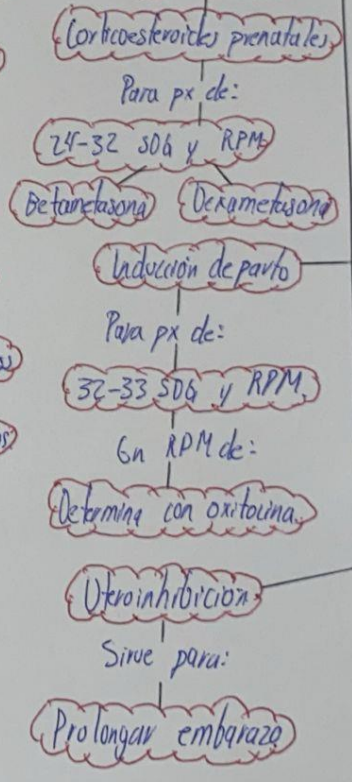 Corticoesteroides prenatales
Para px de:
24-32 SDG y RPM
Betametasona Dexametasona
Inducción de parto
Para px de:
32-33 SDG y RPM
En RPM de:
Determina con oxitocina
Uteroinhibición
Sirve para:
Prolongar embarazo